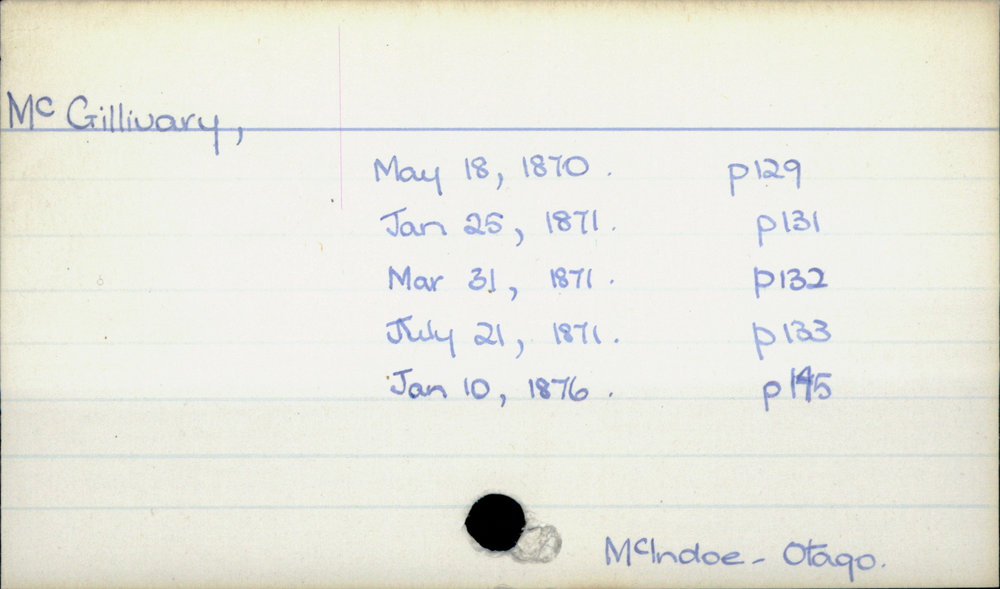 Mc Gillivary,
May 18, 1870. p129
Jan 25, 1871. p131
Mar 31, 1871. p132
July 21, 1871. p133
Jan 10, 1876. p145
McIndoe - Otago.